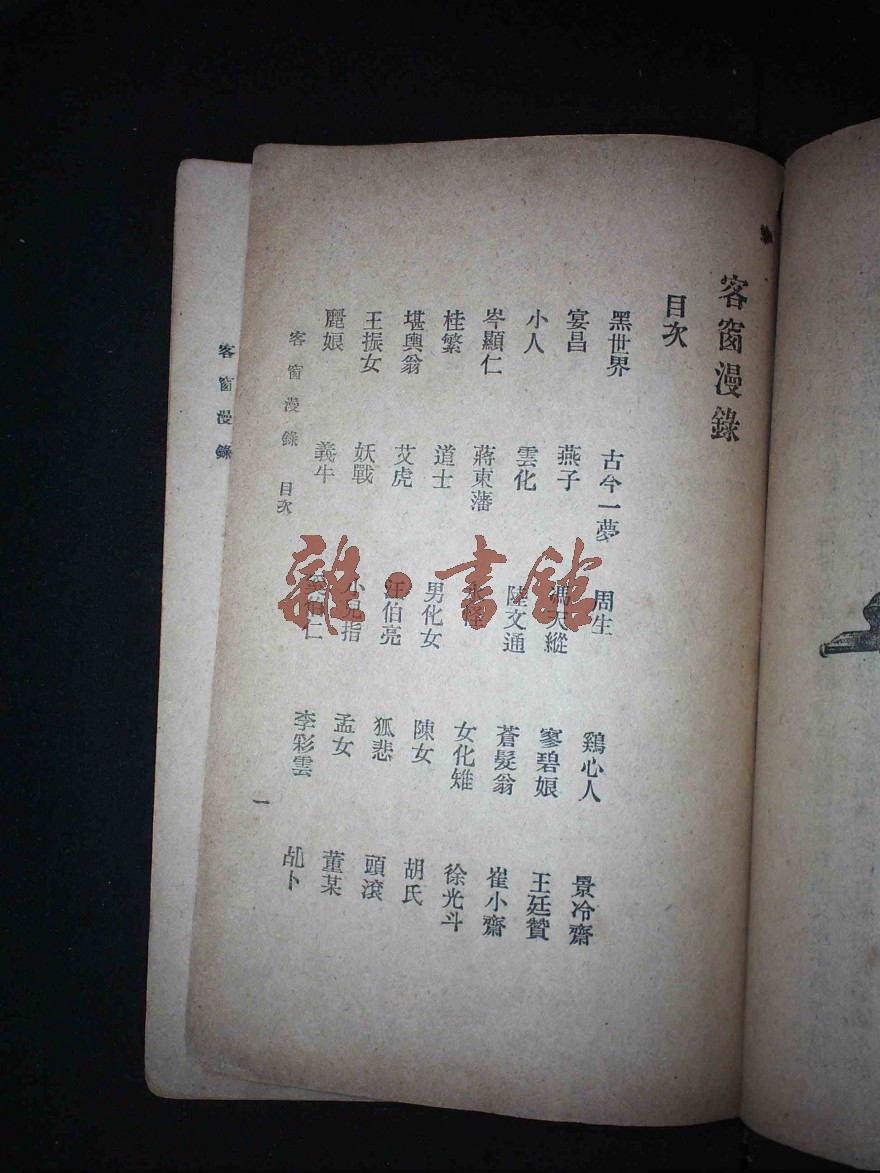 客窗漫錄
目次
黑世界 古今一夢 周生 鷄心人 景冷齋
宴昌 燕子 馮天縱 寥碧娘 王廷贊
小人 雲化 陸文通 蒼髮翁 崔小齋
岑顯仁 蔣東藩 女化雉 徐光斗
桂繁 道士 男化女 陳女 胡氏
堪輿翁 艾虎 汪伯亮 狐悲 頭滾
王振女 妖戰 小兒指 孟女 董某
麗娘 義牛 伯仁 李彩雲 乩卜
客窗漫錄 目次 一
客窗漫錄
雜·書館